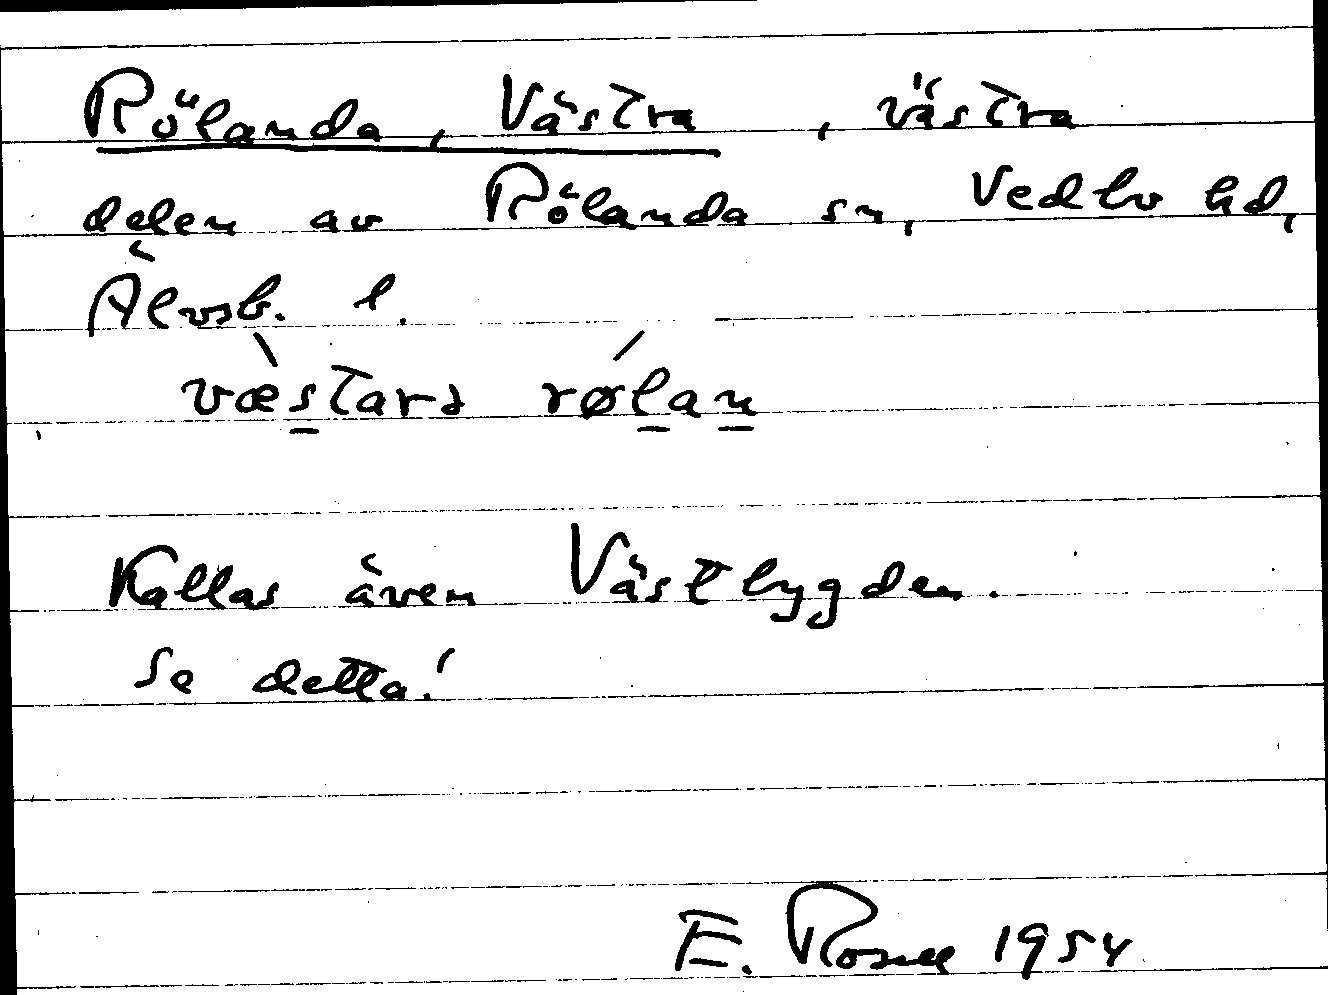 Rölanda, Västra, västra
delen av Rölanda sn, Vedbo hd,
Älvsb. l.
væ̀starə røĺan
Kallas även Västbygden.
Se detta!
E. Rosell 1954